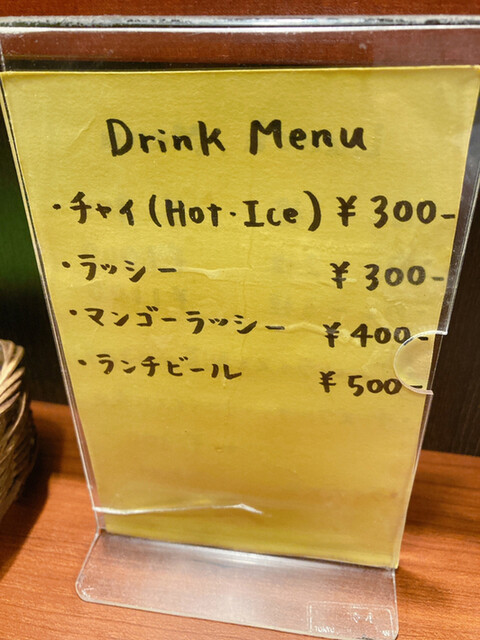 Drink Menu
・チャイ(Hot・Ice) ¥300-
・ラッシー ¥300-
・マンゴーラッシー ¥400-
・ランチビール ¥500-